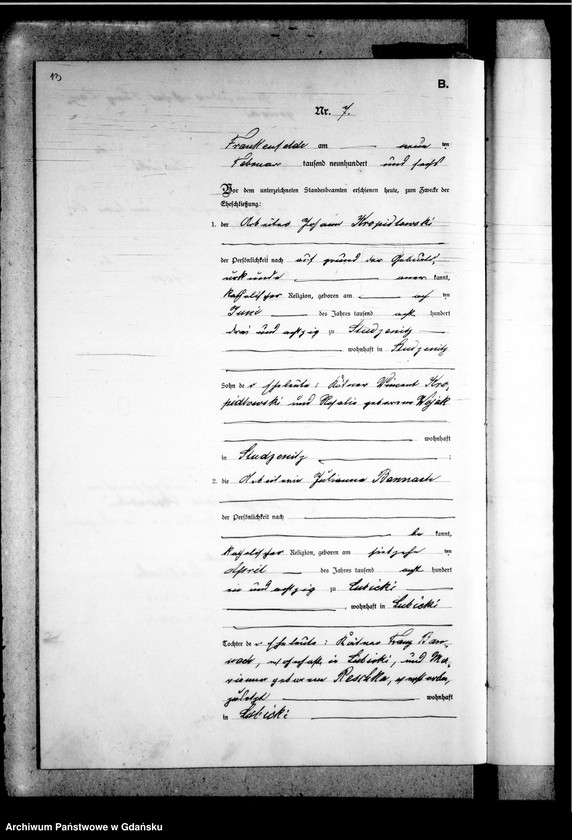 13
B.
Nr. 7.
Frankenfelde am neun ten
Februar tausend neunhundert und sechs
Vor dem unterzeichneten Standesbeamten erschienen heute, zum Zwecke der
Eheschließung:
1. der Arbeiter Johann Kropidlowski
der Persönlichkeit nach auf Grund der Geburts-
urkunde aner kannt,
katholischer Religion, geboren am ach ten
Juni des Jahres tausend acht hundert
drei und achtzig zu Studzenitz
wohnhaft in Studzenitz
Sohn der Eheleute: Kätner Vincent Kro-
pidlowski und Rosalie geborene Wojak
wohnhaft
in Studzenitz ;
2. die Arbeiterin Julianna Bannach
der Persönlichkeit nach
be kannt,
katholischer Religion, geboren am siebzehn ten
April des Jahres tausend acht hundert
und achtzig zu Lubicki
, wohnhaft in Lubicki
Tochter der Eheleute: Kätner Franz Ban-
nach, wohnhaft in Lubicki, und Ma-
rianna geborene Reschka, verstorben,
zuletzt wohnhaft
in Lubicki
Archiwum Państwowe w Gdańsku